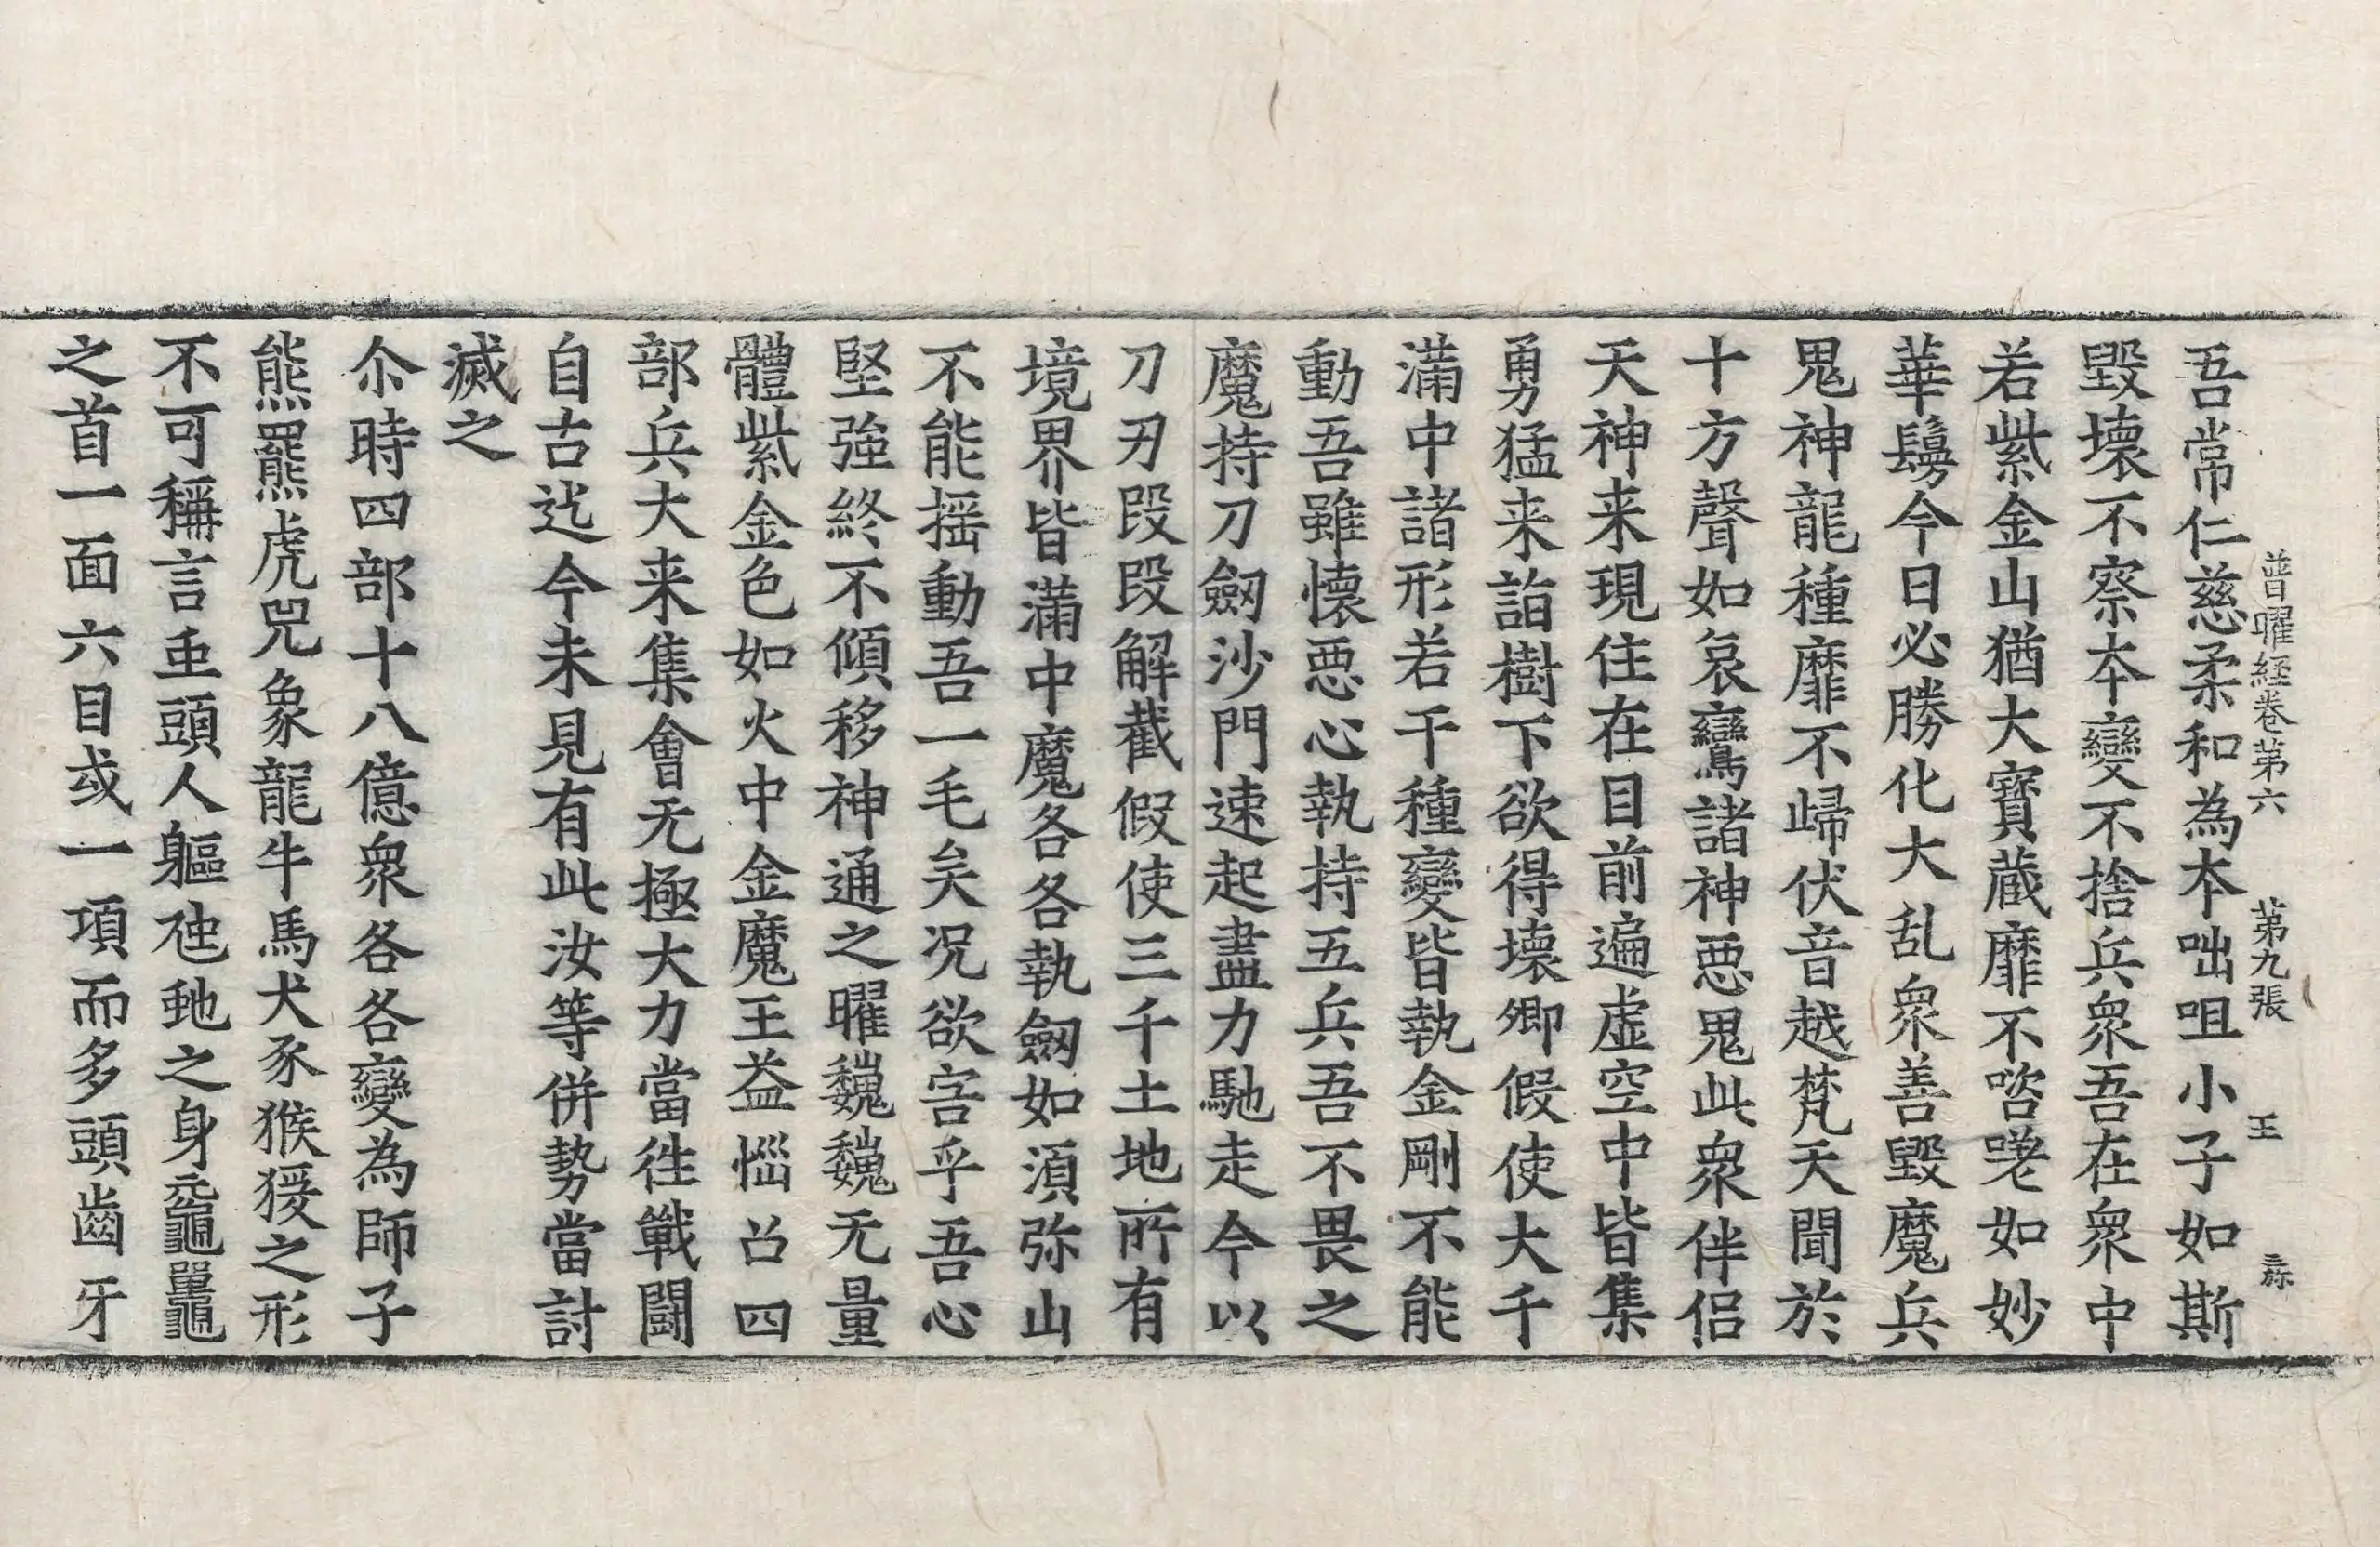 普曜経卷第六　第九張　王
吾常仁慈柔和為本咄咀小子如斯
毀壞不察本變不捨兵衆吾在衆中
若紫金山猶大寶蔵靡不咨嗟如妙
華鬘今日必勝化大乱衆善毀魔兵
鬼神龍種靡不歸伏音越梵天聞於
十方聲如哀鸞諸神惡鬼此衆伴侣
天神来現住在目前遍虚空中皆集
勇猛来詣樹下欲得壊卿假使大千
滿中諸形若干種變皆執金剛不能
動吾雖懷惡心執持五兵吾不畏之
魔持刀劔沙門速起盡力馳走今以
刀刃段段解截假使三千土地所有
境界皆滿中魔各各執劔如須弥山
不能揺動吾一毛矣况欲害乎吾心
堅強終不傾移神通之曜巍巍无量
體紫金色如火中金魔王益惱召四
部兵大来集會无極大力當徃戰鬪
自古迄今未見有此汝等併勢當討
滅之
尒時四部十八億衆各各變為師子
熊羆虎兕象龍牛馬犬豕猴猨之形
不可稱言虫頭人軀虺虵之身黿鼉
之首一面六目或一項而多頭齒牙